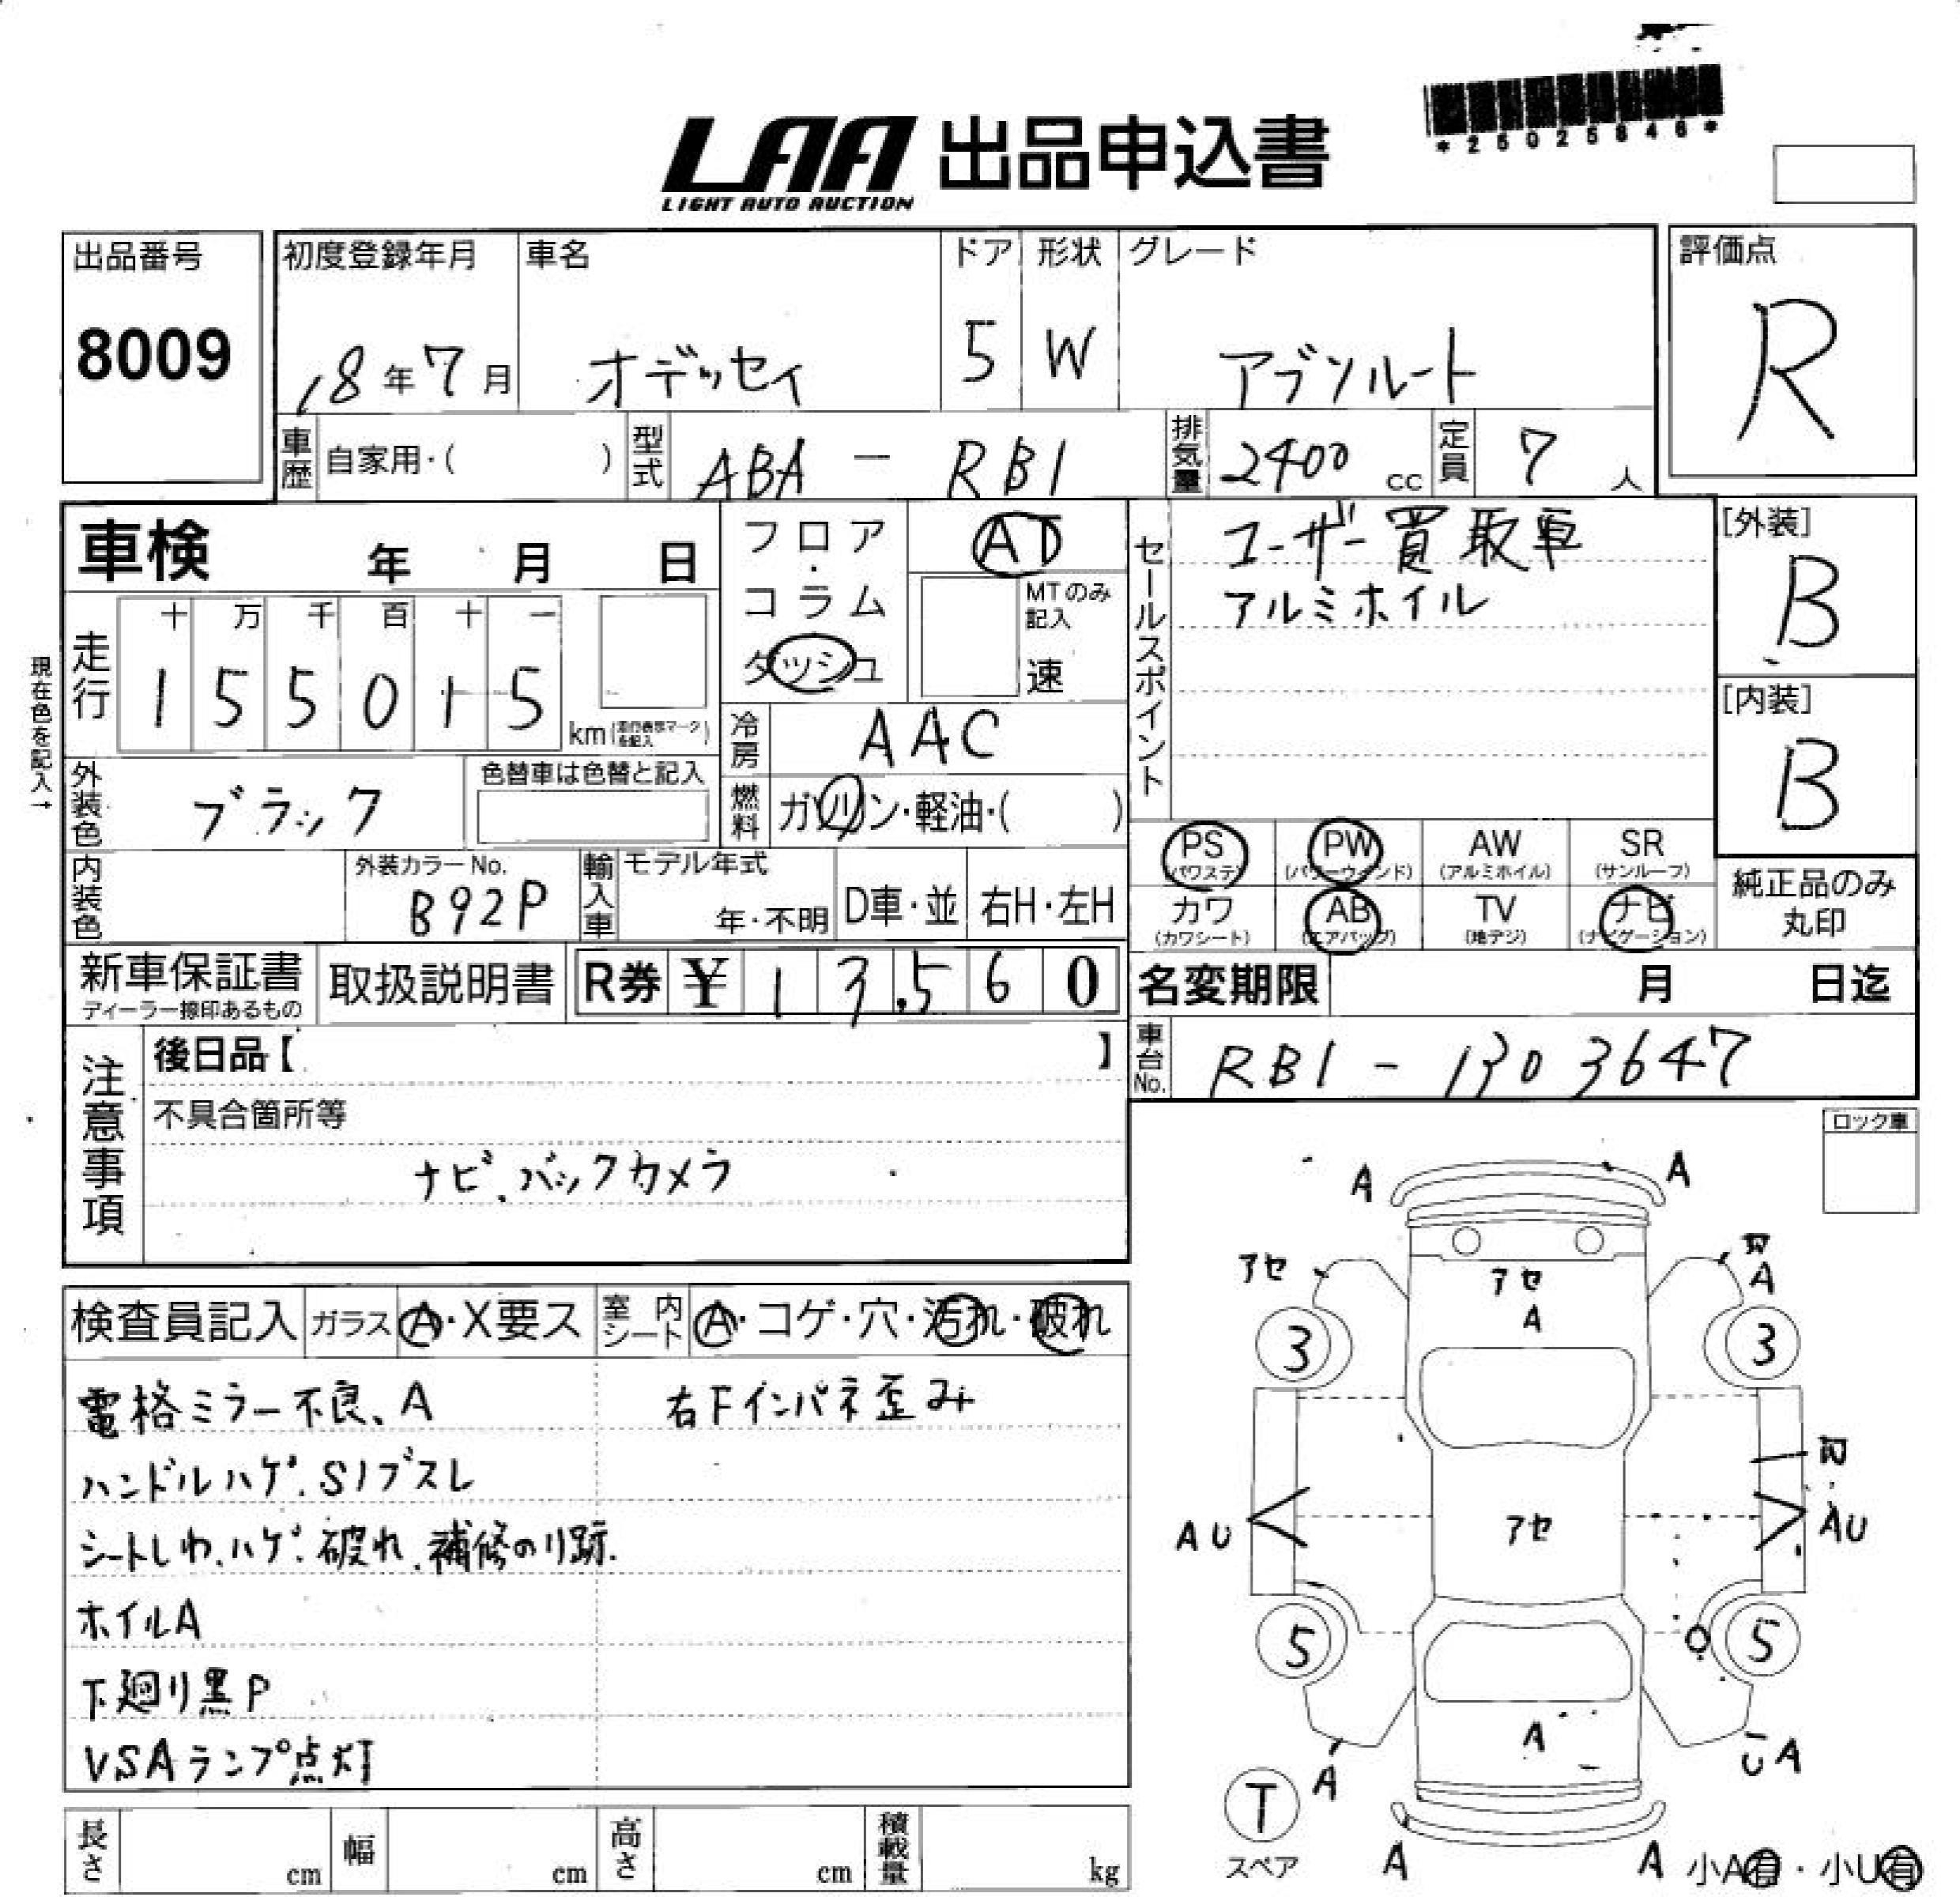 *25025846*
LAA 出品申込書
LIGHT AUTO AUCTION
出品番号
8009
初度登録年月
18年7月
車名
オデッセイ
ドア
5
形状
W
グレード
アブソルート
評価点
R
車歴 自家用・( )
型式 ABA - RB1
排気量 2400 cc
定員 7 人
車検 年 月 日
フロア・コラム
ダッシュ
AT
MTのみ記入
速
セールスポイント
ユーザー買取車
アルミホイル
[外装]
B
[内装]
B
現在色を記入→
走行
十 万 千 百 十 一
1 5 5 0 1 5
km(走行表示マークを記入)
冷房 AAC
燃料 ガソリン・軽油・( )
外装色 ブラック
色替車は色替と記入
内装色
外装カラーNo.
B92P
輸入車
モデル年式
年・不明
D車・並
右H・左H
PS (パワステ)
PW (パワーウィンド)
AW (アルミホイル)
SR (サンルーフ)
カワ (カワシート)
AB (エアバッグ)
TV (地デジ)
ナビ (ナビゲーション)
純正品のみ
丸印
新車保証書
ディーラー捺印あるもの
取扱説明書
R券 ¥ 13,560
名変期限 月 日迄
車台No. RB1 - 1303647
注意事項
後日品【 】
不具合箇所等
ナビ、バックカメラ
ロック車
検査員記入
ガラス A・X要ス
室内シート A・コゲ・穴・汚れ・破れ
電格ミラー不良、A
右Fインパネ歪み
ハンドルハゲ、Sノブスレ
シートしわ、ハゲ、破れ、補修のり跡
ホイルA
下廻り黒P
VSAランプ点灯
A
A
アセ
アセ
A
A
3
3
AU
アセ
AU
5
5
A
A
UA
T
スペア
A
A
小A有・小U有
長さ cm
幅 cm
高さ cm
積載量 kg